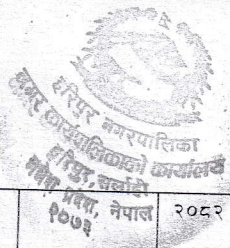 हरिपुर नगरपालिका
नगर कार्यपालिकाको कार्यालय
हरिपुर, सर्लाही
मधेश प्रदेश, नेपाल
२०७३
२०८२